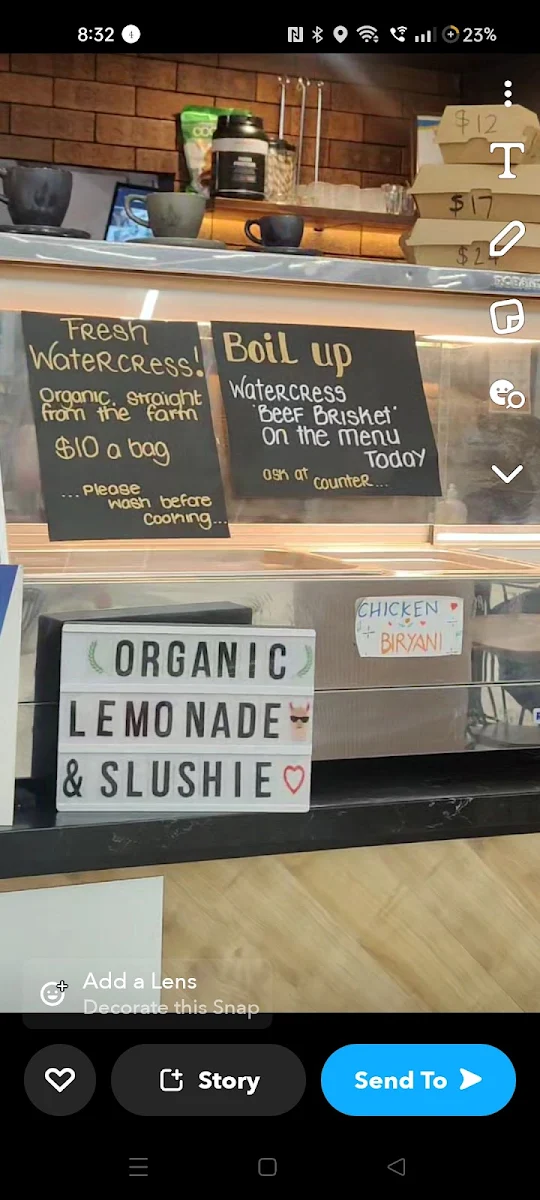 8:32
23%
$12
$17
Fresh
Watercress!
Organic, straight
from the farm
$10 a bag
...Please
wash before
cooking...
Boil up
Watercress
'Beef Brisket'
on the menu
Today
ask at counter...
CHICKEN
BIRYANI
ORGANIC
LEMONADE
& SLUSHIE
Add a Lens
Decorate this Snap
Story
Send To